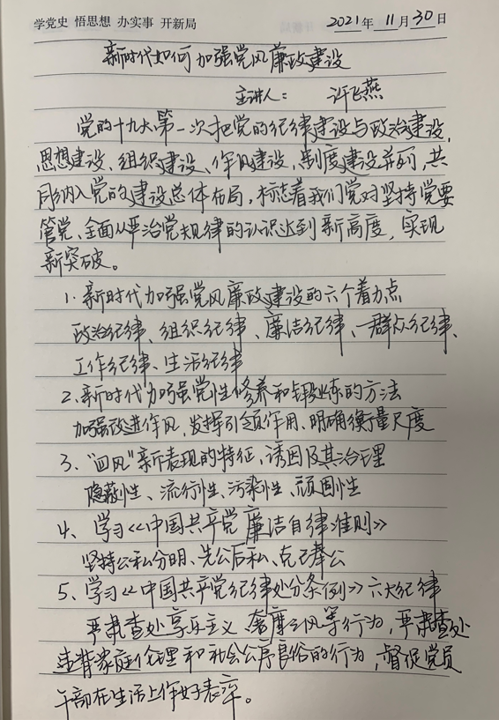 学党史 悟思想 办实事 开新局
2021年 11月 30日
新时代如何加强党风廉政建设
主讲人： 许飞燕
党的十九大第一次把党的纪律建设与政治建设、
思想建设、组织建设、作风建设、制度建设并列，共
同纳入党的建设总体布局，标志着我们党对坚持党要
管党、全面从严治党规律的认识达到新高度，实现
新突破。
1. 新时代加强党风廉政建设的六个着力点
政治纪律、组织纪律、廉洁纪律、群众纪律、
工作纪律、生活纪律
2. 新时代加强党性修养和锻炼的方法
加强改进作风，发挥引领作用、明确衡量尺度
3、"四风"新表现的特征，诱因及其治理
隐蔽性、流行性、污染性、顽固性
4、学习《中国共产党廉洁自律准则》
坚持公私分明、先公后私、克己奉公
5、学习《中国共产党纪律处分条例》六大纪律
严肃查处享乐主义、奢靡之风等行为，严肃查处
违背家庭伦理和社会公序良俗的行为，督促党员
干部在生活上作好表率。